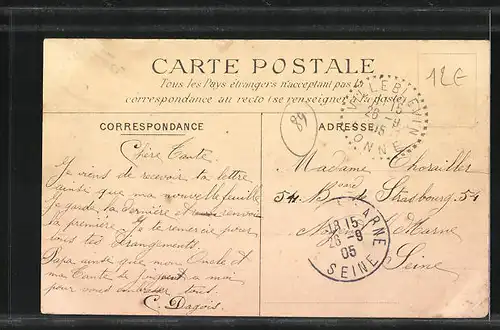 CARTE POSTALE
Tous les Pays étrangers n'acceptant pas la
correspondance au recto (se renseigner à la poste)
12€
89
VILLEBLEVIN
15
26 - 9
05
YONNE
CORRESPONDANCE
ADRESSE
Chère Tante
Je viens de recevoir la lettre
ainsi que ma nouvelle feuille
je garde la dernière et renvoie
la première. Je te remercie pour
tous tes dérangements.
Papa ainsi que mon Oncle et
ma Tante se joignent a moi
pour vous embrasser tous.
C. Dagois
Madame Thorailler
54 Bd de Strasbourg 54
Boulevard
Nogent s/ Marne
Seine
MARNE
18 15
26 - 9
05
SEINE